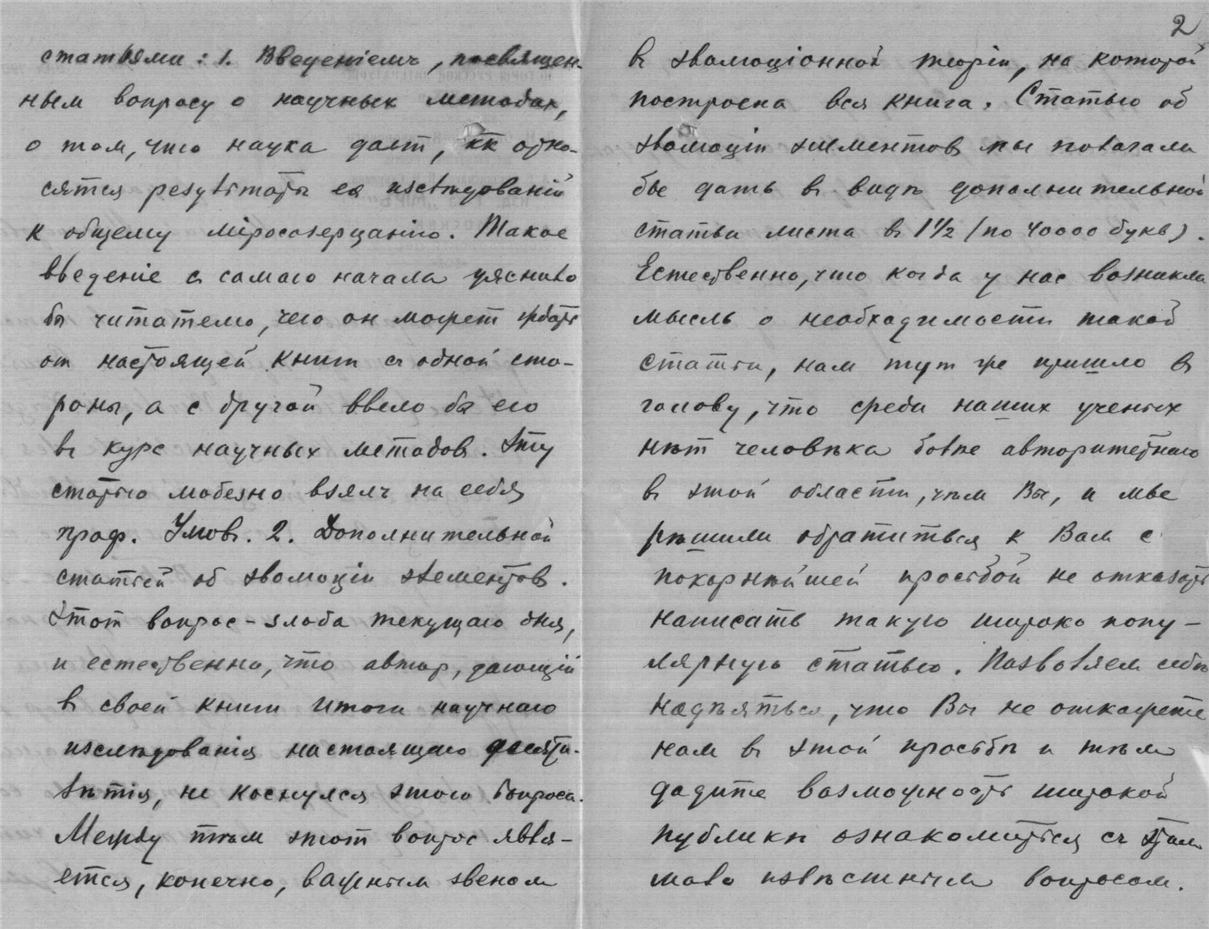 статьями: 1. Введеніемъ, посвящен-
нымъ вопросу о научных методах,
о том, что наука дает, кк отно-
сятся результаты ея изслѣдованій
к общему міросозерцанію. Такое
введеніе с самаго начала уяснило
бы читателю, чего он может ждать
от настоящей книги съ одной сто-
роны, а с другой ввело бы его
въ курс научных методовъ. Эту
статью любезно взялъ на себя
проф. Умовъ. 2. Дополнительной
статьей об эволюціи элементов.
Этот вопрос – злоба текущаго дня,
и естественно, что автор, дающій
в своей книги итоги научнаго
изслѣдованія настоящаго десяти-
лѣтія, не коснулся этого вопроса.
Между тѣм этот вопрос явля-
ется, конечно, важным звеном
2
в эволюціонной теоріи, на которой
построена вся книга. Статью об
эволюціи элементов мы полагали
бы дать в видѣ дополнительной
статьи листа в 1½ (по 40000 букв).
Естественно, что когда у нас возникла
мысль о необходимости такой
статьи, нам тут же пришло в
голову, что среди наших ученых
нѣт человѣка болѣе авторитетнаго
в этой области, чѣм Вы, и мы
рѣшили обратиться к Вам с
покорнѣйшей просьбой не отказать
написать такую широко попу-
лярную статью. Позволяем себѣ
надѣяться, что Вы не откажете
нам в этой просьбѣ и тѣм
дадите возможность широкой
публикѣ ознакомиться съ этим
мало извѣстным вопросом.